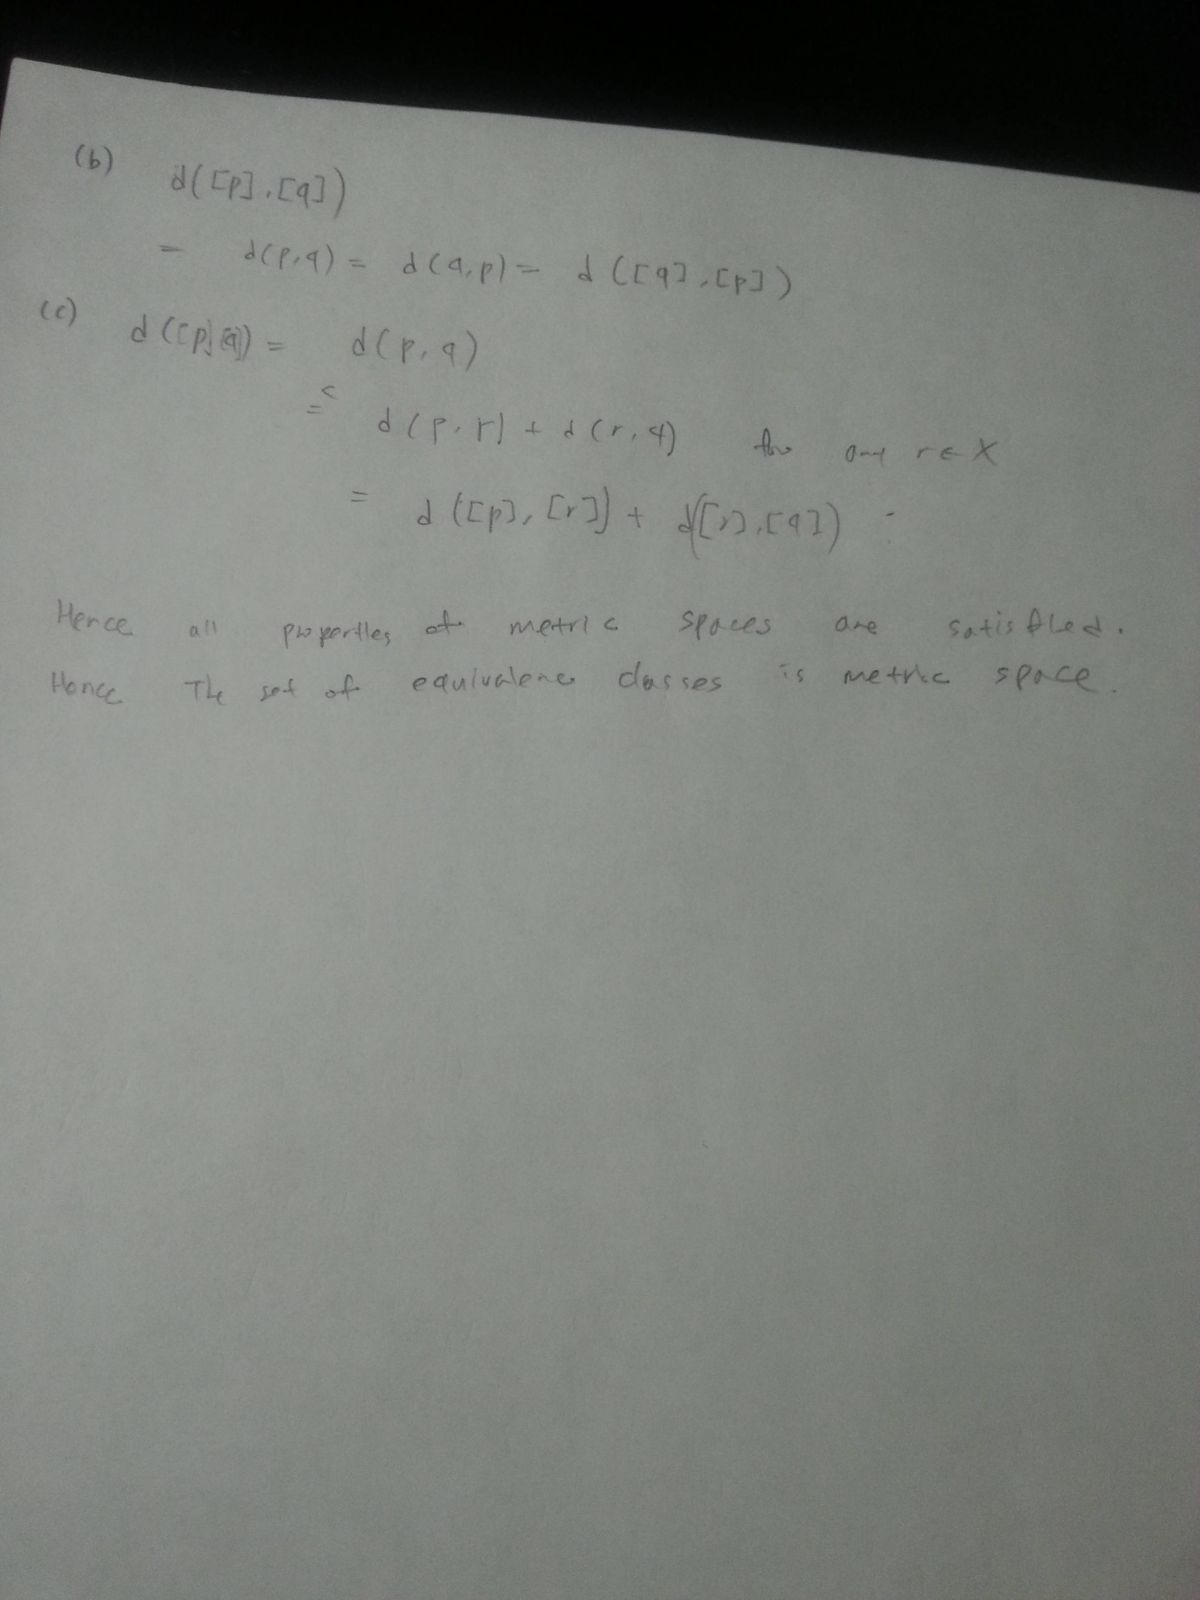 (b) d([p],[q])
= d(p,q) = d(q,p) = d([q],[p])
(c) d([p],[q]) = d(p,q)
≤ d(p,r) + d(r,q) for any r ∈ X
= d([p],[r]) + d([r],[q])
Hence all properties of metric spaces are satisfied.
Hence The set of equivalence classes is metric space.